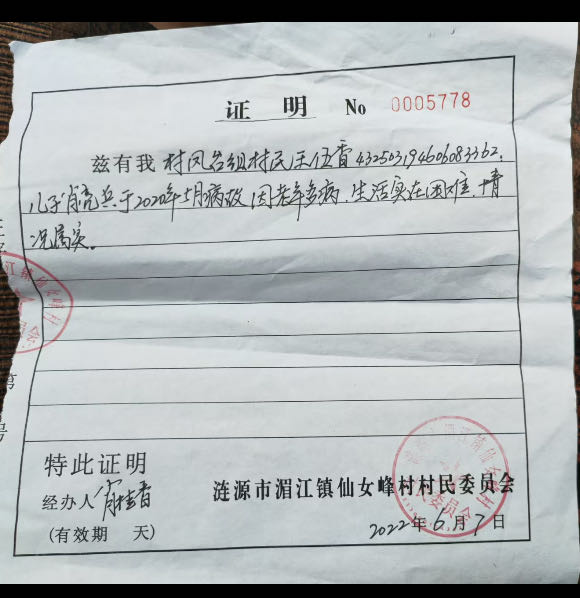 证 明 No 0005778
兹有我村凤台组村民王伍香432503194606083362,
儿子肖亮兵于2020年5月病故因老年多病.生活实在困难.情
况属实。
特此证明
经办人
涟源市湄江镇仙女峰村村民委员会
(有效期 天)
2022年6月7日